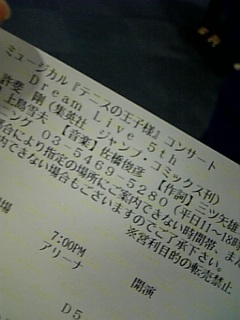 ミュージカル『テニスの王子様』コンサート
Dream Live 5th
許斐 剛(集英社 ジャンプ・コミックス刊)
上島雪夫 【音楽】佐橋俊彦 【作詞】三ツ矢雄
03-5469-5280(平日11～18時
合により指定の場所にご案内できない時間帯、また
内できない場合もございますのでご了承下さい。
※営利目的の転売禁止
場
開演
7:00PM
アリーナ
D5